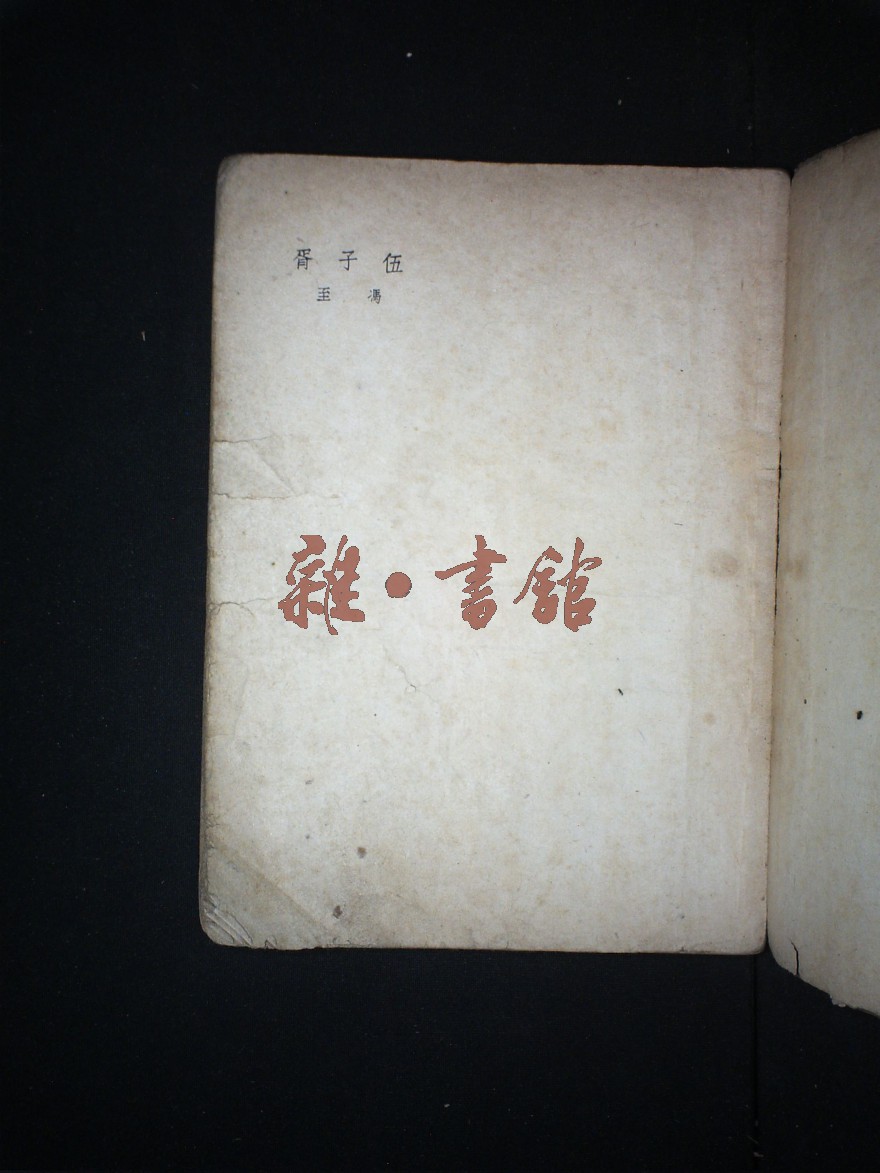 伍子胥
馮至
雜·書館